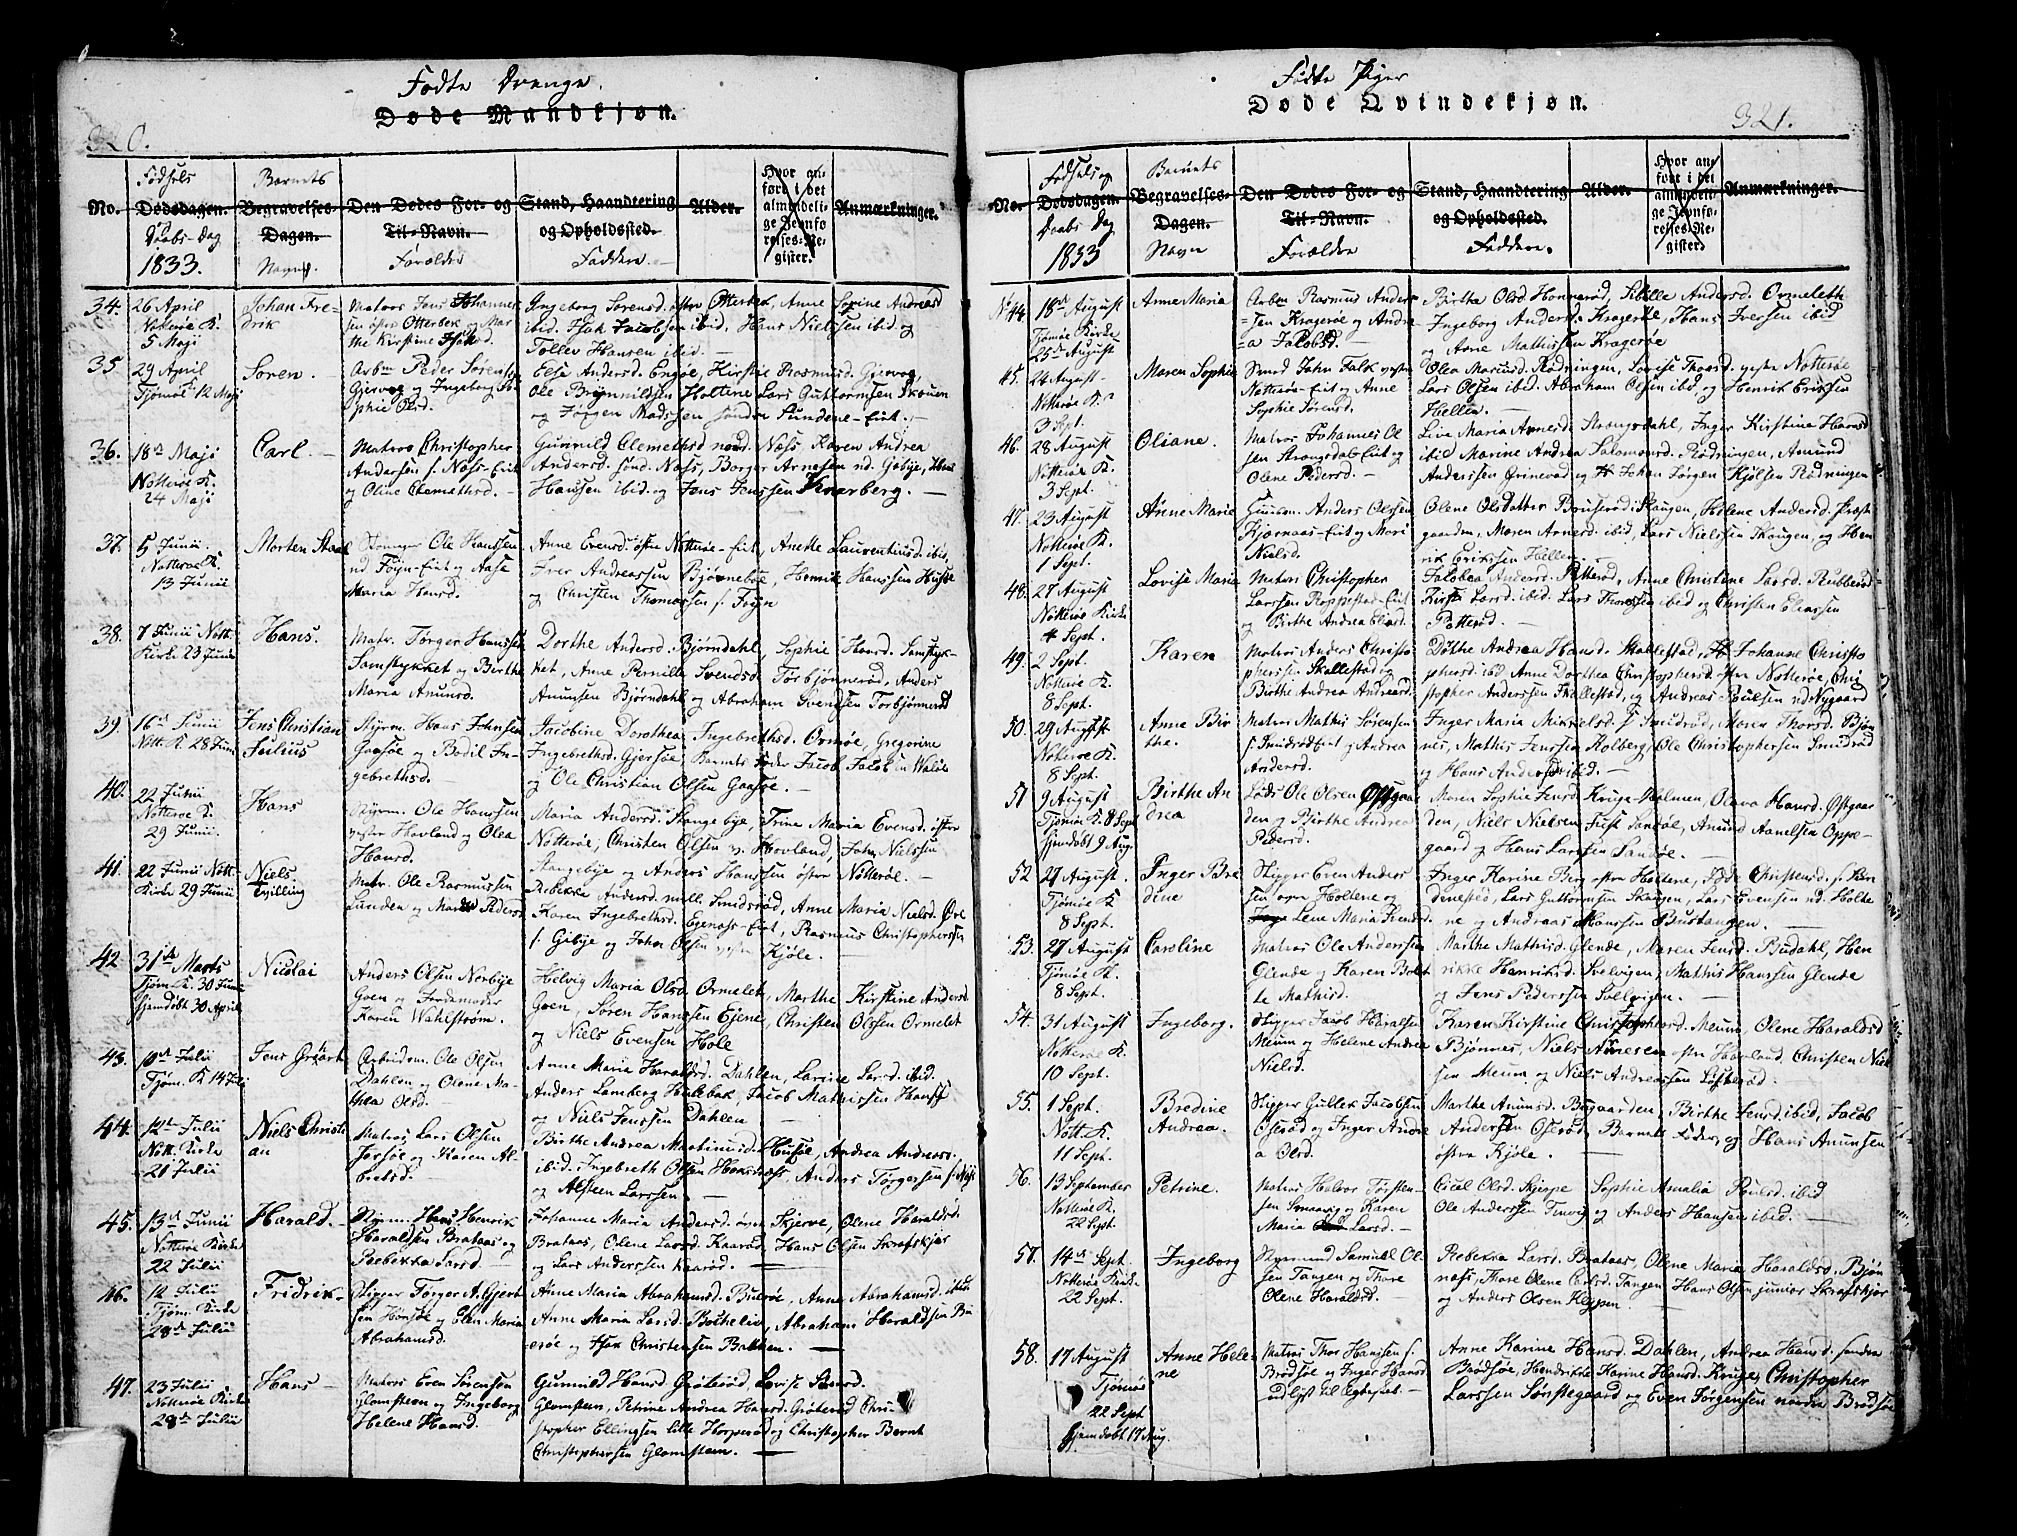 320.
Fødte Drenge.
Døde Mandkjøn.
No.
Fødsels
Dødsdagen.
Daabs-Dag
1833.
Barnets
Begravelses-
Dagen.
Navn.
Den Dødes For- og
Til-Navn.
Forældre
Stand, Haandtering
og Opholdssted.
Faddere.
Alder.
Hvor an-
ført i det
almindeli-
ge Jevnfø-
relses-Re-
gister.
Anmærkninger.
34. 26 April
Nøtterøe K.
5 Maji
Johan Fre-
drik
Matros Jens Johannes-
sen østre Otterbek og Mar-
the Kirstine Isaksd.
Ingeborg Sørensd. østre Otterbek, Anne Sørine Andreasd
ibid. Isak Jacobsen ibid, Hans Nielssen ibid og
Tollev Hansen ibid.
35 29 April
Tjømøe 12 Maji
Søren.
Arbm Peder Sørensen
Gjervog og Ingeborg So-
phie Olsd.
Else Andersd. Engøe, Kirstie Rasmusd. Gjervog,
Ole Brynnildsen Holtene, Lars Guttormsen Skouen
og Jørgen Madssen søndre Sundene-Eiet.
36. 18de Maji
Nøtterøe K.
24 Maji
Carl.
Matros Christopher
Andersen s. Næss-Eiet
og Oline Clemethsd.
Gunnild Clemethsd nordr. Næss, Karen Andrea
Andersd. sønd. Næss, Borger Arnesen nd. Gabje,
Hanssen ibid. og Jens Jenssen
37. 5 Junii.
Nøtterøe K.
13 Junii
Morten
Ole Hanssen
nd Føyn-Eiet og Aase
Maria Hansd.
Anne Evensd. østre Nøtterøe-Eiet, Anette Laurentiusd. ibid,
Iver Andreassen Bjørneboe, Henrik Hanssen Husøe
og Christen Thomassen s. Føyn
38. 7 Junii Nøtt.
Kirke 23 Junii
Hans.
Matr. Jørger Hanssen
Samstykket og Birthe
Maria Anunsd.
Dorthe Andersd. Bjørndahl, Sophie Hansd. Samstyk-
ket, Anne Pernille Svendsd. Torbjønnerød, Anders
Anunsen Bjørndahl og Abraham Svendsen Torbjønnerød
39. 16de Junii
Nøtt. K. 28 Juni
Jens Christian
Julius
Styrm. Hans Johnsen
Gaasøe og Bodil In-
gebrethsd.
Jacobine Dorothea Ingebrethsd. Ormøe, Gregorine
Ingebrethsd. Gjersøe, Barnets Fader Jacob Jacobsen Waløe
og Ole Christian Olsen Gaasøe.
40. 22 Junii
Nøtterøe K.
29 Junii.
Hans
Styrm. Ole Hanssen
vestre Hovland og Olea
Hansd.
Maria Andersd. Stangebye, Trine Maria Evensd. østre
Nøtterøe, Christen Olsen v. Hovland, John Nielssen
Stangebye og Anders Hanssen østre Nøtterøe.
41. 22 Junii Nøtt.
Kirke 29 Junii
Niels
Tvilling
Matr. Ole Rasmussen
Lunden og Pedersd
Rebekke Andersd. mell. Smidsrød, Anne Maria Nielsd. Øre
Karen Ingebrethsd. Egenæss-Eiet, Rasmus Christophersen
s. Gabje og John Olsen vestre Kjøle.
42 31te Marts
Tjøm K. 30 Junii
hjemdøbt 30 April
Nicolai
Anders Olsen Norbye
Goen og Jordemoder
Karen Wahlstrøm.
Helvig Maria Olsd. Ormelet, Marthe Kirstine Andersd.
Goen, Søren Hanssen Ejene, Christen Olssen Ormelet
og Niels Evensen Hole
43. 10de Julii
Tjøm. K. 14 Juli
Jens Grøart
Arbeidsm. Ole Olsen
Dahlen og Olene Ma-
thea Olsd.
Anne Maria Haraldsd. Dahlen, Larine Larsd. ibid.
Anders Lomberg Hulebak, Jacob Mathissen Hansø
og Niels Jenssen Dahlen
44. 12de Julii
Nøtt. Kirke
21 Julii
Niels Christi
an
Matros Lars Olsen
Jersøe og Karen Al-
bretsd.
Birthe Andrea Martinusd. Husøe, Andrea Andreasd.
ibid. Ingebreth Olsen Hoksnæss, Anders Tørgerssen s. Næss
og Alsteen Larssen.
45. 13de Junii
Nøtterøe Kirke
22 Julii
Harald.
Styrm. Hans Henrik
Haraldsen Brataas og
Rebekka Larsd.
Johanne Maria Andersd. øvre Skjerve, Olene Haraldsd.
Brataas, Olene Larsd. Kaarød, Hans Olsen Skrafskjær
og Lars Anderssen Kaarød.
46. 12 Julii
Tjøm. Kirke
28de Julii
Fridrik
Skipper Tørger A. Gjert-
sen Honsøe og Elen Maria
Abrahamsd.
Anne Maria Abrahamsd. Buerøe, Anne Abrahamsd. ibid.
Anne Maria Larsd. Bothelie, Abraham Haraldsen Bu
erøe og Isak Christensen Bakken.
47. 23 Julii
Nøtterøe Kirke
28de Julii
Hans
Matros Even Sørensen
Glomsteen og Ingeborg
Helene Hansd.
Gunnild Hansd Grøterød, Lovise Larsd.
Glomsteen, Petrine Andrea Hansd. Grøterød Chri-
stopher Ellingsen lille Horperød og Christopher Bernt
Christophersen Glomsteen.
321.
Fødte Piger
Døde Qvindekjøn.
No.
Fødsels og
Dødsdagen.
Daabs Dag
1833
Barnets
Begravelses-
Dagen.
Navn
Den Dødes For- og
Til-Navn.
Forældre
Stand, Haandtering
og Opholdssted.
Faddere.
Alder.
Hvor an-
ført i det
almindeli-
ge Jevnfø-
relses-Re-
gister.
Anmærkninger.
No 44 18de August
Tjømøe Kirke
25de August
Anne Maria
Arbm Rasmus Anders
sen Kragerøe og Andre
a Jakobsd.
Birthe Olsd Honnerød, Sibille Andersd. Ormeleth
Ingeborg Andersd. Kragerøe, Hans Iversen ibid
og Arne Mathissen Kragerøe
45. 24 August
Nøtterøe K.
3 Spt.
Maren Sophie
Smed John Falk vestre
Nøtterøe-Eiet og Anne
Sophie Sørensd.
Olea Mariusd. Rødningen, Lovise Thorsd. vestre Nøtterøe
Lars Olsen ibid. Abraham Olsen ibid. og Henrik Eriksen
Hellen.
46. 28 August
Nøtterøe K.
3 Sept.
Oliane.
Matros Johannes Ol
sen Strængsdals-Eiet og
Olene Pedersd.
Live Maria Arnesd. Strængsdahl, Inger Kirstina Hansd
ibid Marine Andrea Salomonsd. Rødningen, Amund
Anderssen Grinerød og Johan Jørgen Kjølsen Rødningen
47. 23 August
Nøtterøe K.
1 Sept.
Anne Marie
Huusm. Anders Olssen
Kjørnaas-Eiet og Mari
Nielsd.
Olene Olsdatter Bruserød Skaugen, Helene Andersd. Præst
gaarden, Maren Arnesd. ibid, Lars Nielssen Skougen, og Hen
rik Erikssen Hellen
48. 27 August
Nøtterøe Kirke
4 Sept.
Lovise Maria
Matros Christopher
Larssen Roppestad-Eiet
og Birthe Andrea Eliasd.
Jakobea Andersd. Pætterød, Anne Christine Larsd. Rubberød
Kirsti Larsd. ibid. Lars Thorssen ibid og Christen Eliassen
Pætterød.
49. 2 Sept.
Nøtterøe K.
8 Sept.
Karen
Matros Anders Christo
phersen Skallestad og
Birthe Andrea Andreasd.
Dorthe Andrea Hansd. Skallestad, Johanne Christo
phersd. ibid Anne Dorthea Christophersd. østre Nøtterøe, Chri
stopher Anderssen Skallestad, og Andreas Poulsen nd Nygaard
50. 29 August
Nøtterøe K.
8 Sept.
Anne Bir
the.
Matros Mathis Sørensen
s. Smidsrød Eiet og Andrea
Andersd.
Inger Maria Mikkelsd. s. Smidsrød, Maren Thorsd. Bjøn
nes, Mathis Jenssen Kolberg, Ole Christophersen Smidsrød
og Hans Andersen ibid.
51 9 August
Tjømøe K. 8 Sept
hjemdøbt 9 Aug.
Birthe An
drea
Lods Ole Olsen Østgaar
den og Birthe Andrea
Pedersd.
Maren Sophie Jensd. Kruge-Holmen, Olava Hansd. Østgaar
den, Niels Nielsen Fuske Sandøe, Anund Aamelsen Oppe-
gaard og Hans Larssen Sandøe.
52 27 August.
Tjømøe K
8 Sept.
Inger Bre
dine
Skipper Even Anders
sen øvre Hollene og
Lene Maria Svendsd.
Inger Karine Berg østre Hollene, Christensd. s. Sun
denested, Lars Guttormsen Skaugen, Lars Evensen nd. Holte
ne og Andreas Hanssen Bustangen.
53. 27 August
Tjømøe K.
8 Sept.
Caroline
Matros Ole Anderssen
Glende og Karen Birit
te Mathisd.
Marthe Mathisd. Glende, Maren Jensd. Budahl, Hen
rikke Henriksd. Sølvigen, Mathis Hanssen Glende
og Jens Pederssen Sølvigen.
54. 31 August
Nøtterøe K.
10 Sept.
Ingeborg.
Skipper Jacob Haralsen
Meum og Helene Andrea
Nielsd.
Karen Kirstine Christophersd. Meum, Olene Haraldsd
Bjønnes, Niels Arnesen østre Hovland, Christen Niels
sen Meum og Niels Andreassen Løkkerød.
55. 1 Sept.
Nøtt. K.
11 Sept.
Bredine
Andrea.
Skipper Gullek Jacobsen
Oserød og Inger Andre
a Olsd.
Marthe Anunsd. Bøgaarden, Birthe Jensd ibid, Jacob
Andersen Oserød, Barnets Fader, og Hans Anunsen
østre Kjøle.
56. 13 September
Nøtterøe K.
22 Sept.
Petrine.
Matros Halvor Torsten-
sen Smaavig og Karen
Maria Larsd.
Cicel Olsd. Skjerpe Sophie Amalia Poulsd. ibid
Ole Anderssen Tinvig og Anders Hansen ibid.
57. 14de Sept.
Nøtterøe Kirke
22 Sept.
Ingeborg
Styrmand Samuel Ol
sen Tangen og Thore
Olene Haraldsd.
Rebekka Larsd. Brataas, Olene Maria Haraldsd. Bjøn
næss, Thore Olene Carlsd. Tangen, Hans Olsen junior Skrafskjær
og Anders Olsen Kleppen.
58. 17 August
Tjømøe
22 Sept
hjemdøbt 17 Aug.
Anne Hele
ne
Matros Thor Hanssen s.
Brødsøe og Inger Hansd
udlyst til Egteskab.
Anne Karine Hansd. Dahlen, Andrea Hansd. søndre
Brødsøe, Hendrikke Karine Hansd. Kruge, Christopher
Larssen Sønstegaard og Even Jørgensen nordre Brødsøe